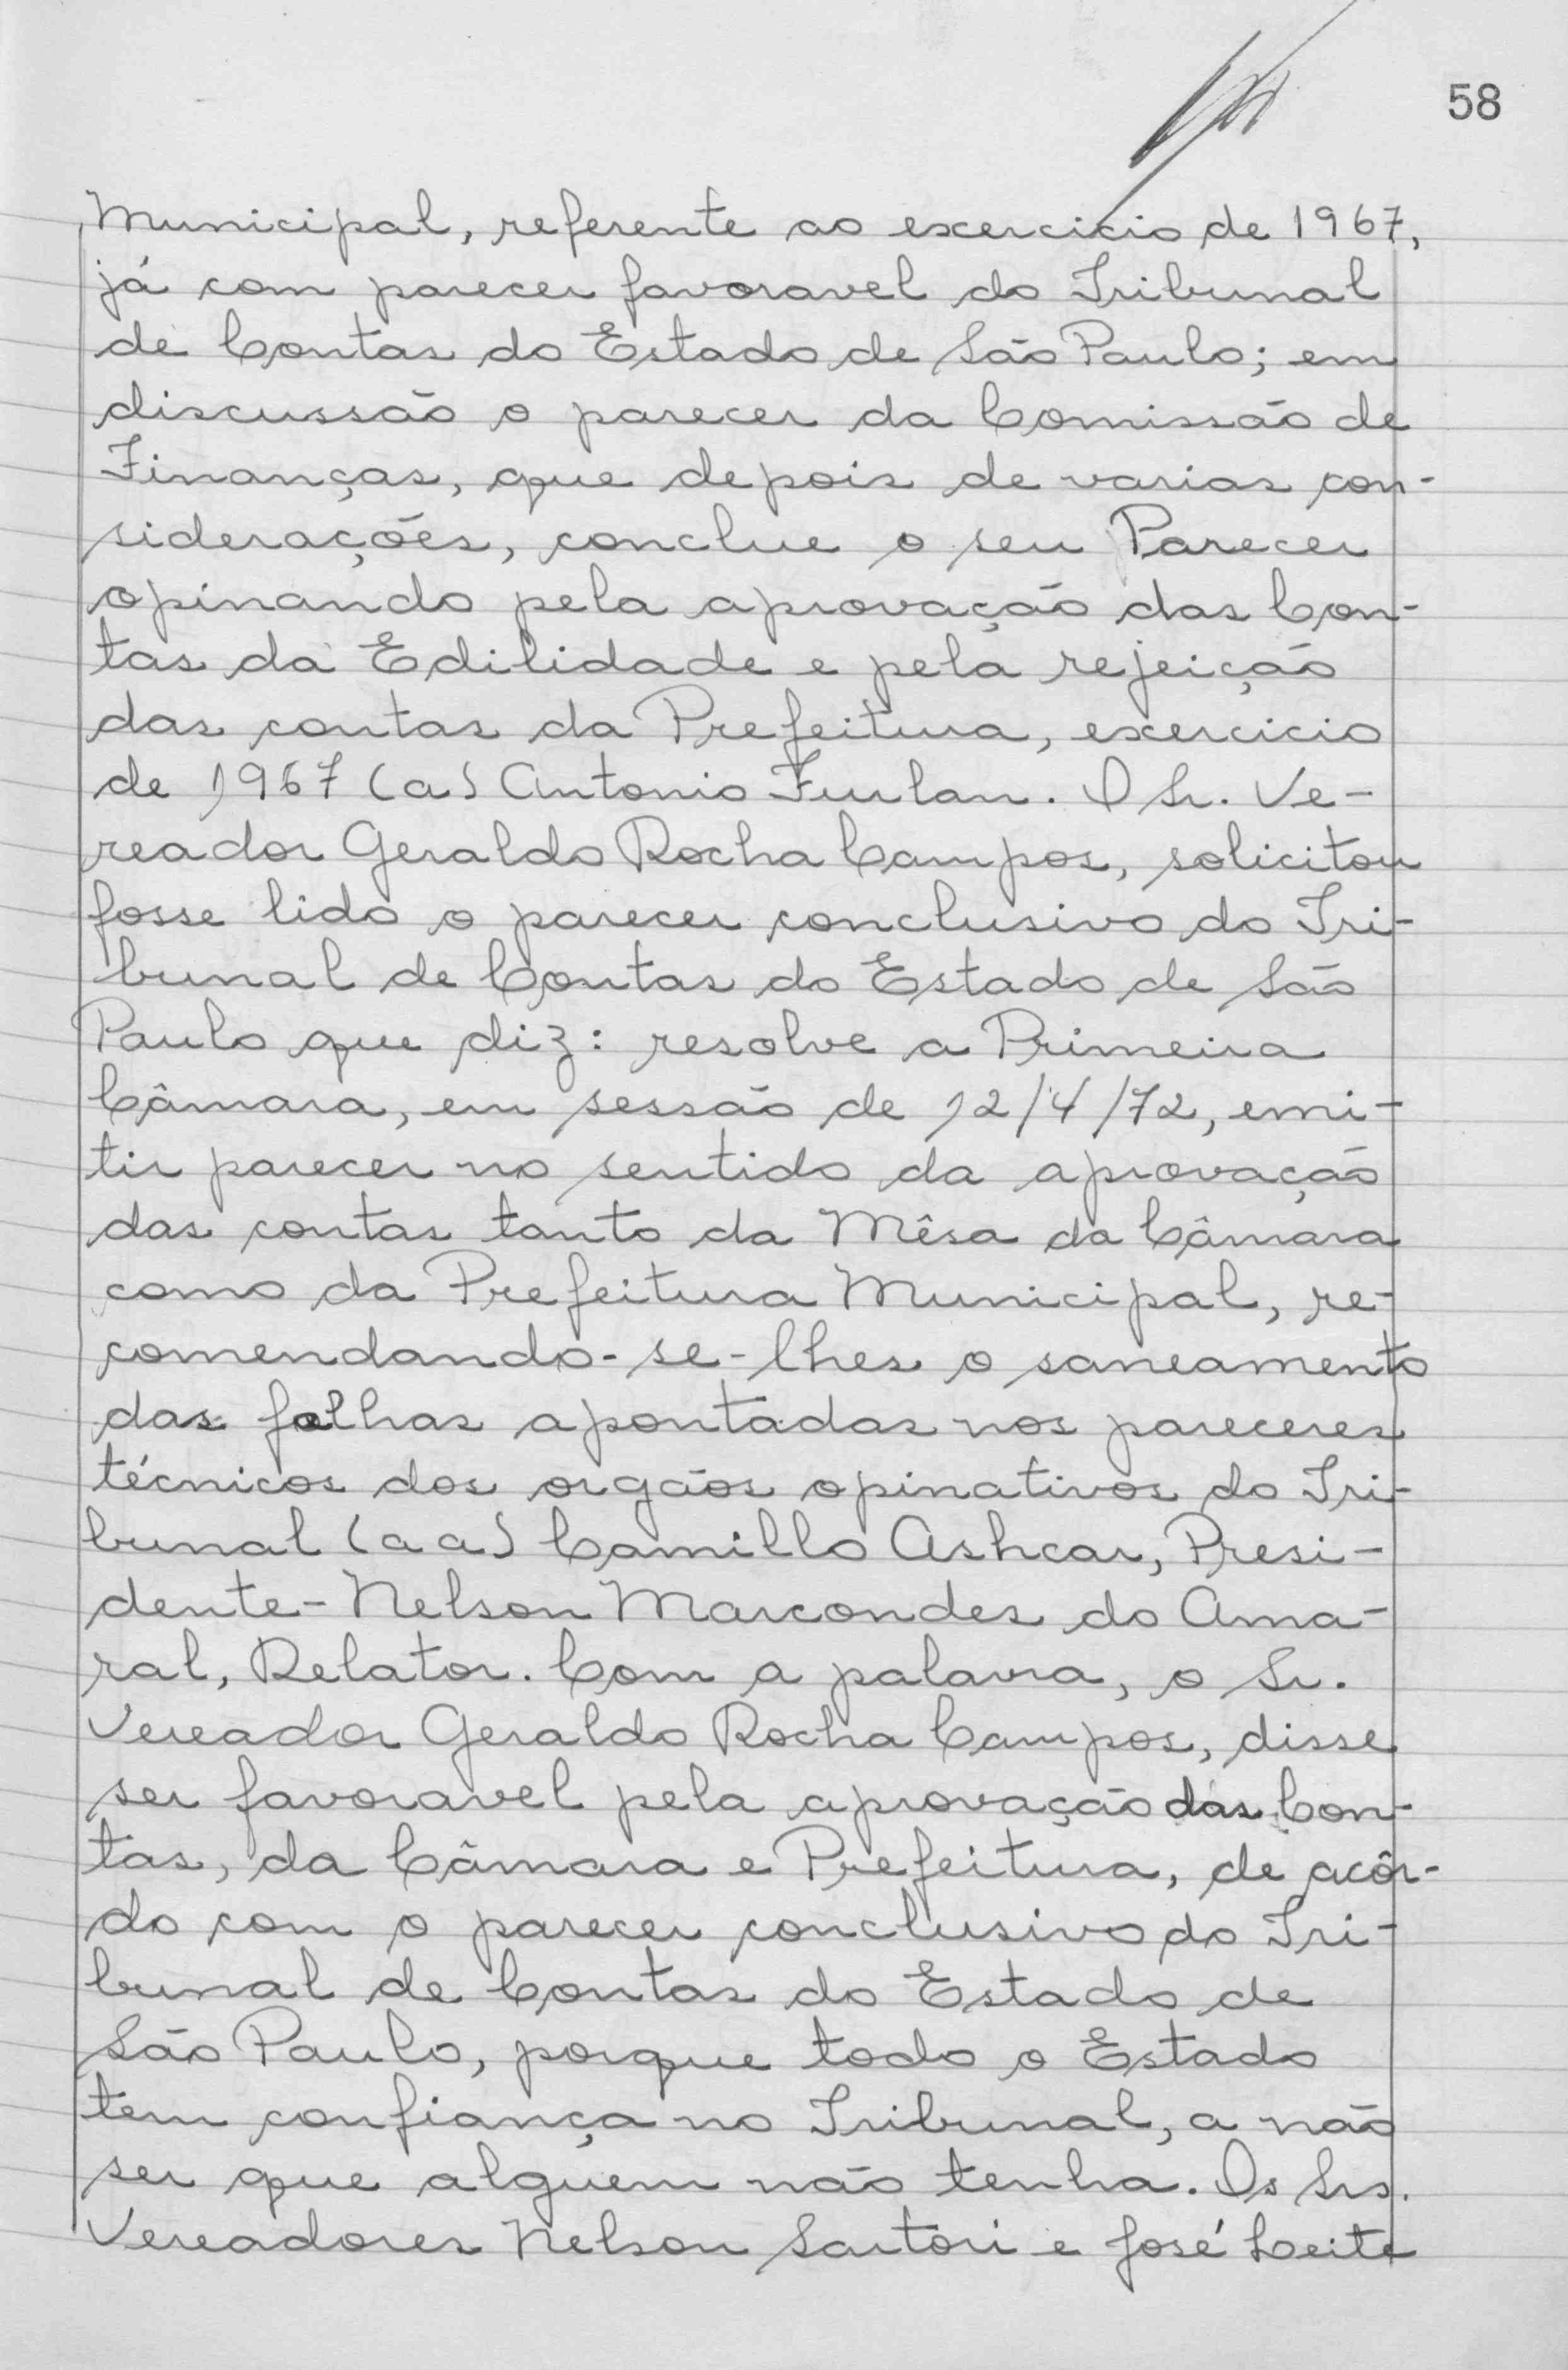 58
Municipal, referente ao exercicio de 1967,
já com parecer favoravel do Tribunal
de Contas do Estado de São Paulo; em
discussão o parecer da Comissão de
Finanças, que depois de varias con-
siderações, conclue o seu Parecer
opinando pela aprovação das Con-
tas da Edilidade e pela rejeição
das contas da Prefeitura, exercicio
de 1967 (a) Antonio Furlan. O Sr. Ve-
reador Geraldo Rocha Campos, solicitou
fosse lido o parecer conclusivo do Tri-
bunal de Contas do Estado de São
Paulo que diz: resolve a Primeira
Câmara, em sessão de 12/4/72, emi-
tir parecer no sentido da aprovação
das contas tanto da Mêsa da Câmara
como da Prefeitura Municipal, re-
comendando-se-lhes o saneamento
das falhas apontadas nos pareceres
técnicos dos orgãos opinativos do Tri-
bunal (aa) Camillo Ashcar, Presi-
dente - Nelson Marcondes do Ama-
ral, Relator. Com a palavra, o Sr.
Vereador Geraldo Rocha Campos, disse
ser favoravel pela aprovação das Con-
tas, da Câmara e Prefeitura, de acôr-
do com o parecer conclusivo do Tri-
bunal de Contas do Estado de
São Paulo, porque todo o Estado
tem confiança no Tribunal, a não
ser que alguem não tenha. Os Srs.
Vereadores Nelson Sartori e José Leite